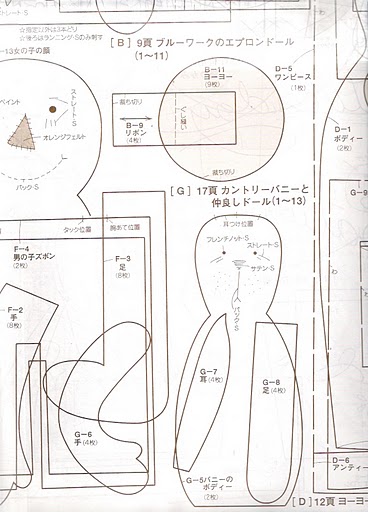 ストレート-S
☆指定以外は3本どり
☆後ろはランニング・Sのみ刺す
-13女の子の顔
ペイント
ストレートS
オレンジフェルト
バック・S
[B] 9頁 ブルーワークのエプロンドール
(1〜11)
B-11
ヨーヨー
(9枚)
裁ち切り
B-9
リボン
(4枚)
ぐし縫い
裁ち切り
D-5
ワンピース
(1枚)
D-1
ボディー
(2枚)
[G] 17頁 カントリーバニーと
仲良しドール(1〜13)
耳つけ位置
フレンチノット・S
ストレート-S
サテン・S
バック・S
G-9
わ
わ
タック位置
胸あて位置
F-4
男の子ズボン
(2枚)
F-3
足
(8枚)
F-2
手
(8枚)
G-7
耳(4枚)
G-8
足(4枚)
G-6
手(4枚)
G-5バニーの
ボディー
(2枚)
D-6
アンティー
[D] 12頁 ヨーヨー